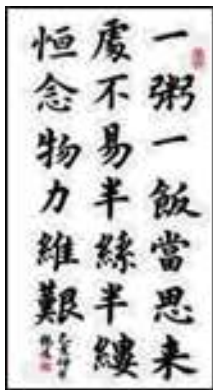 一粥一飯當思来
處不易半絲半縷
恒念物力維艱